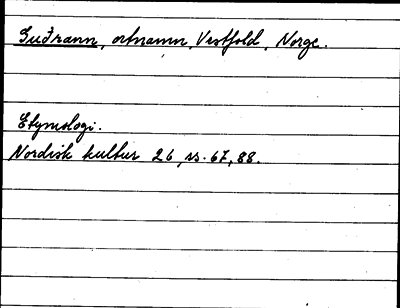 Guðrann, ortnamn, Vestfold, Norge.
Etymologi.
Nordisk kultur 26, ss. 67, 88.